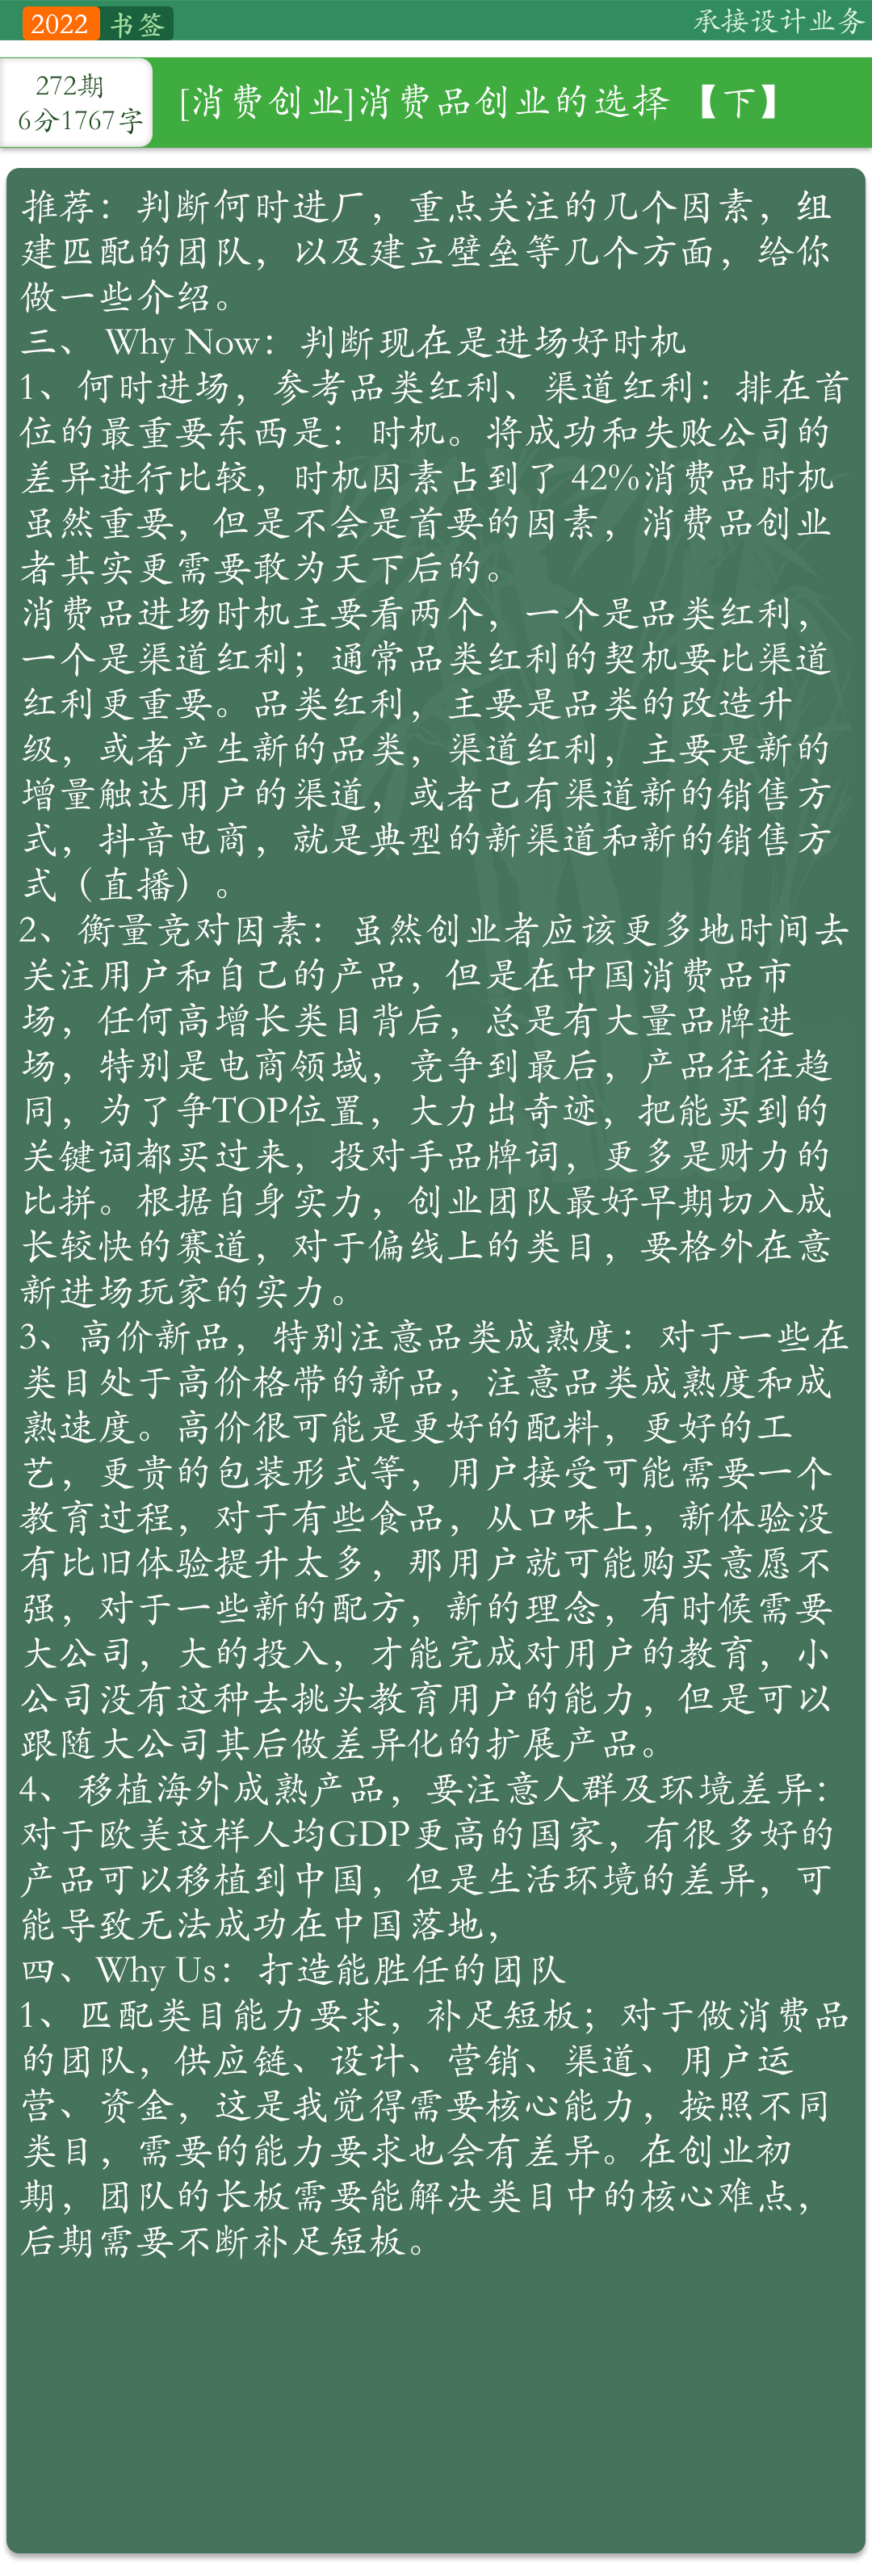 2022 书签
承接设计业务
272期
6分1767字
[消费创业]消费品创业的选择 【下】
推荐：判断何时进厂，重点关注的几个因素，组
建匹配的团队，以及建立壁垒等几个方面，给你
做一些介绍。
三、 Why Now：判断现在是进场好时机
1、何时进场，参考品类红利、渠道红利：排在首
位的最重要东西是：时机。将成功和失败公司的
差异进行比较，时机因素占到了 42%消费品时机
虽然重要，但是不会是首要的因素，消费品创业
者其实更需要敢为天下后的。
消费品进场时机主要看两个，一个是品类红利，
一个是渠道红利；通常品类红利的契机要比渠道
红利更重要。品类红利，主要是品类的改造升
级，或者产生新的品类，渠道红利，主要是新的
增量触达用户的渠道，或者已有渠道新的销售方
式，抖音电商，就是典型的新渠道和新的销售方
式（直播）。
2、衡量竞对因素：虽然创业者应该更多地时间去
关注用户和自己的产品，但是在中国消费品市
场，任何高增长类目背后，总是有大量品牌进
场，特别是电商领域，竞争到最后，产品往往趋
同，为了争TOP位置，大力出奇迹，把能买到的
关键词都买过来，投对手品牌词，更多是财力的
比拼。根据自身实力，创业团队最好早期切入成
长较快的赛道，对于偏线上的类目，要格外在意
新进场玩家的实力。
3、高价新品，特别注意品类成熟度：对于一些在
类目处于高价格带的新品，注意品类成熟度和成
熟速度。高价很可能是更好的配料，更好的工
艺，更贵的包装形式等，用户接受可能需要一个
教育过程，对于有些食品，从口味上，新体验没
有比旧体验提升太多，那用户就可能购买意愿不
强，对于一些新的配方，新的理念，有时候需要
大公司，大的投入，才能完成对用户的教育，小
公司没有这种去挑头教育用户的能力，但是可以
跟随大公司其后做差异化的扩展产品。
4、移植海外成熟产品，要注意人群及环境差异：
对于欧美这样人均GDP更高的国家，有很多好的
产品可以移植到中国，但是生活环境的差异，可
能导致无法成功在中国落地，
四、Why Us：打造能胜任的团队
1、匹配类目能力要求，补足短板；对于做消费品
的团队，供应链、设计、营销、渠道、用户运
营、资金，这是我觉得需要核心能力，按照不同
类目，需要的能力要求也会有差异。在创业初
期，团队的长板需要能解决类目中的核心难点，
后期需要不断补足短板。